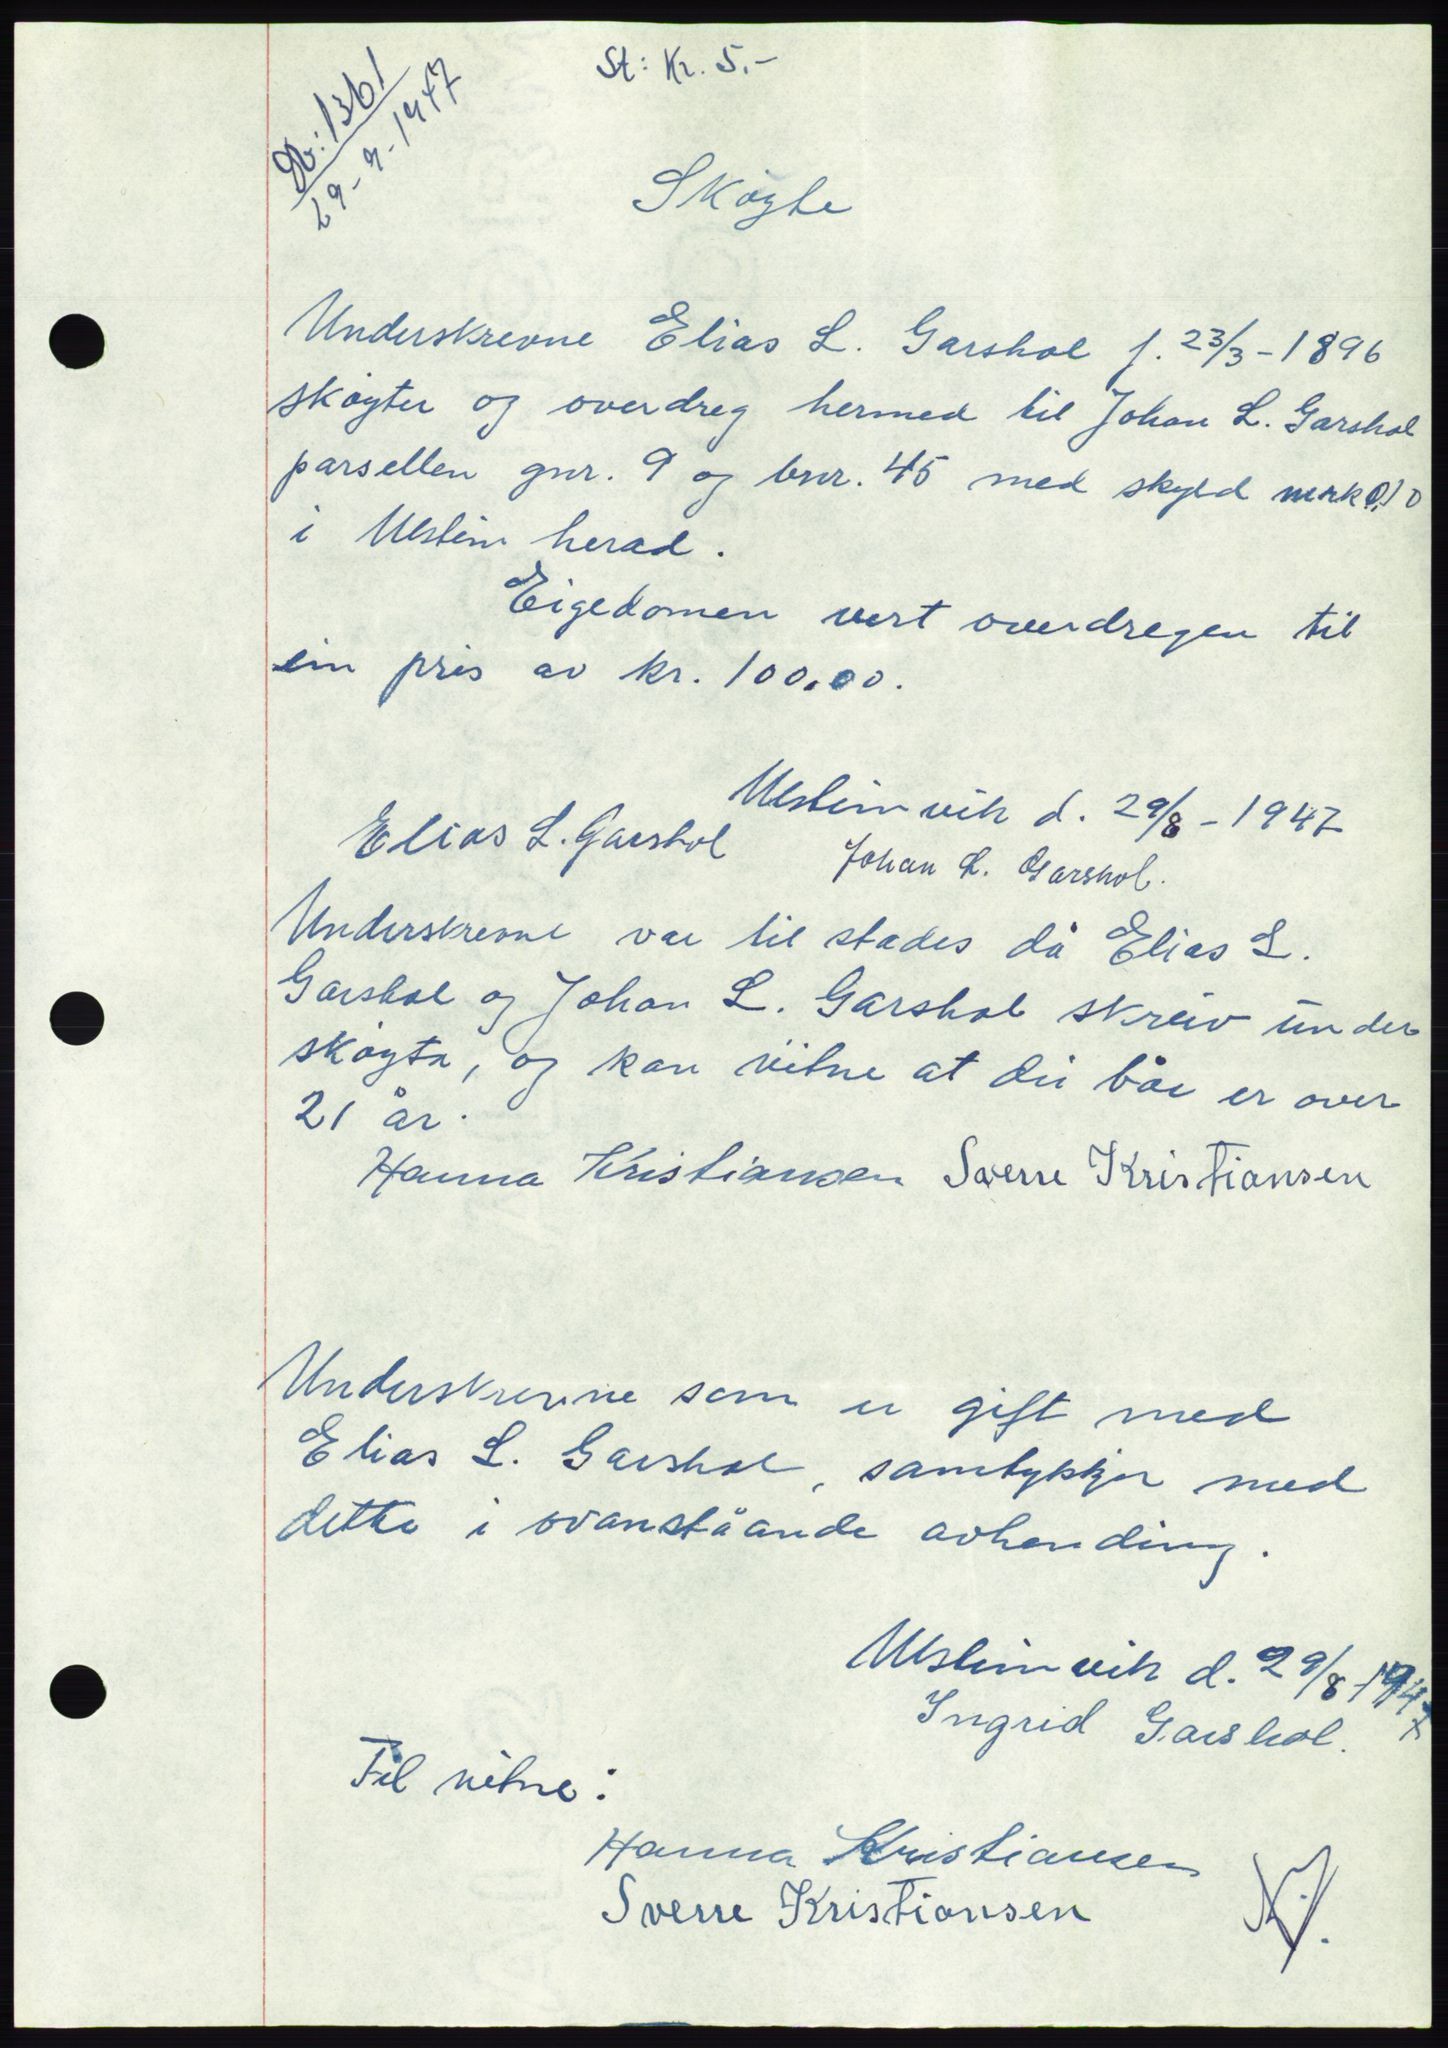 St: Kr. 5.-
Db: 1361
29-9-1947
Skøyte
Underskrevne Elias L. Garshol f. 23/3-1896
skøyter og overdreg hermed til Johan L. Garshol
parsellen gnr. 9 og bnr. 45 med skyld mrk 0,10
i Ulstein herad.
Eigedomen vert overdregen til
ein pris av kr. 100.00.
Ulsteinvik d. 29/8-1947
Elias L. Garshol
Johan L. Garshol.
Underskrevne var til stades då Elias L.
Garshol og Johan L. Garshol skreiv under
skøyta, og kan vitne at dei båe er over
21 år.
Hanna Kristiansen Sverre Kristiansen
Underskrevne som er gift med
Elias L. Garshol, samtykkjer med
dette i ovanståande avhending.
Ulsteinvik d. 29/8-1947
Ingrid Garshol.
Til vitne:
Hanna Kristiansen
Sverre Kristiansen